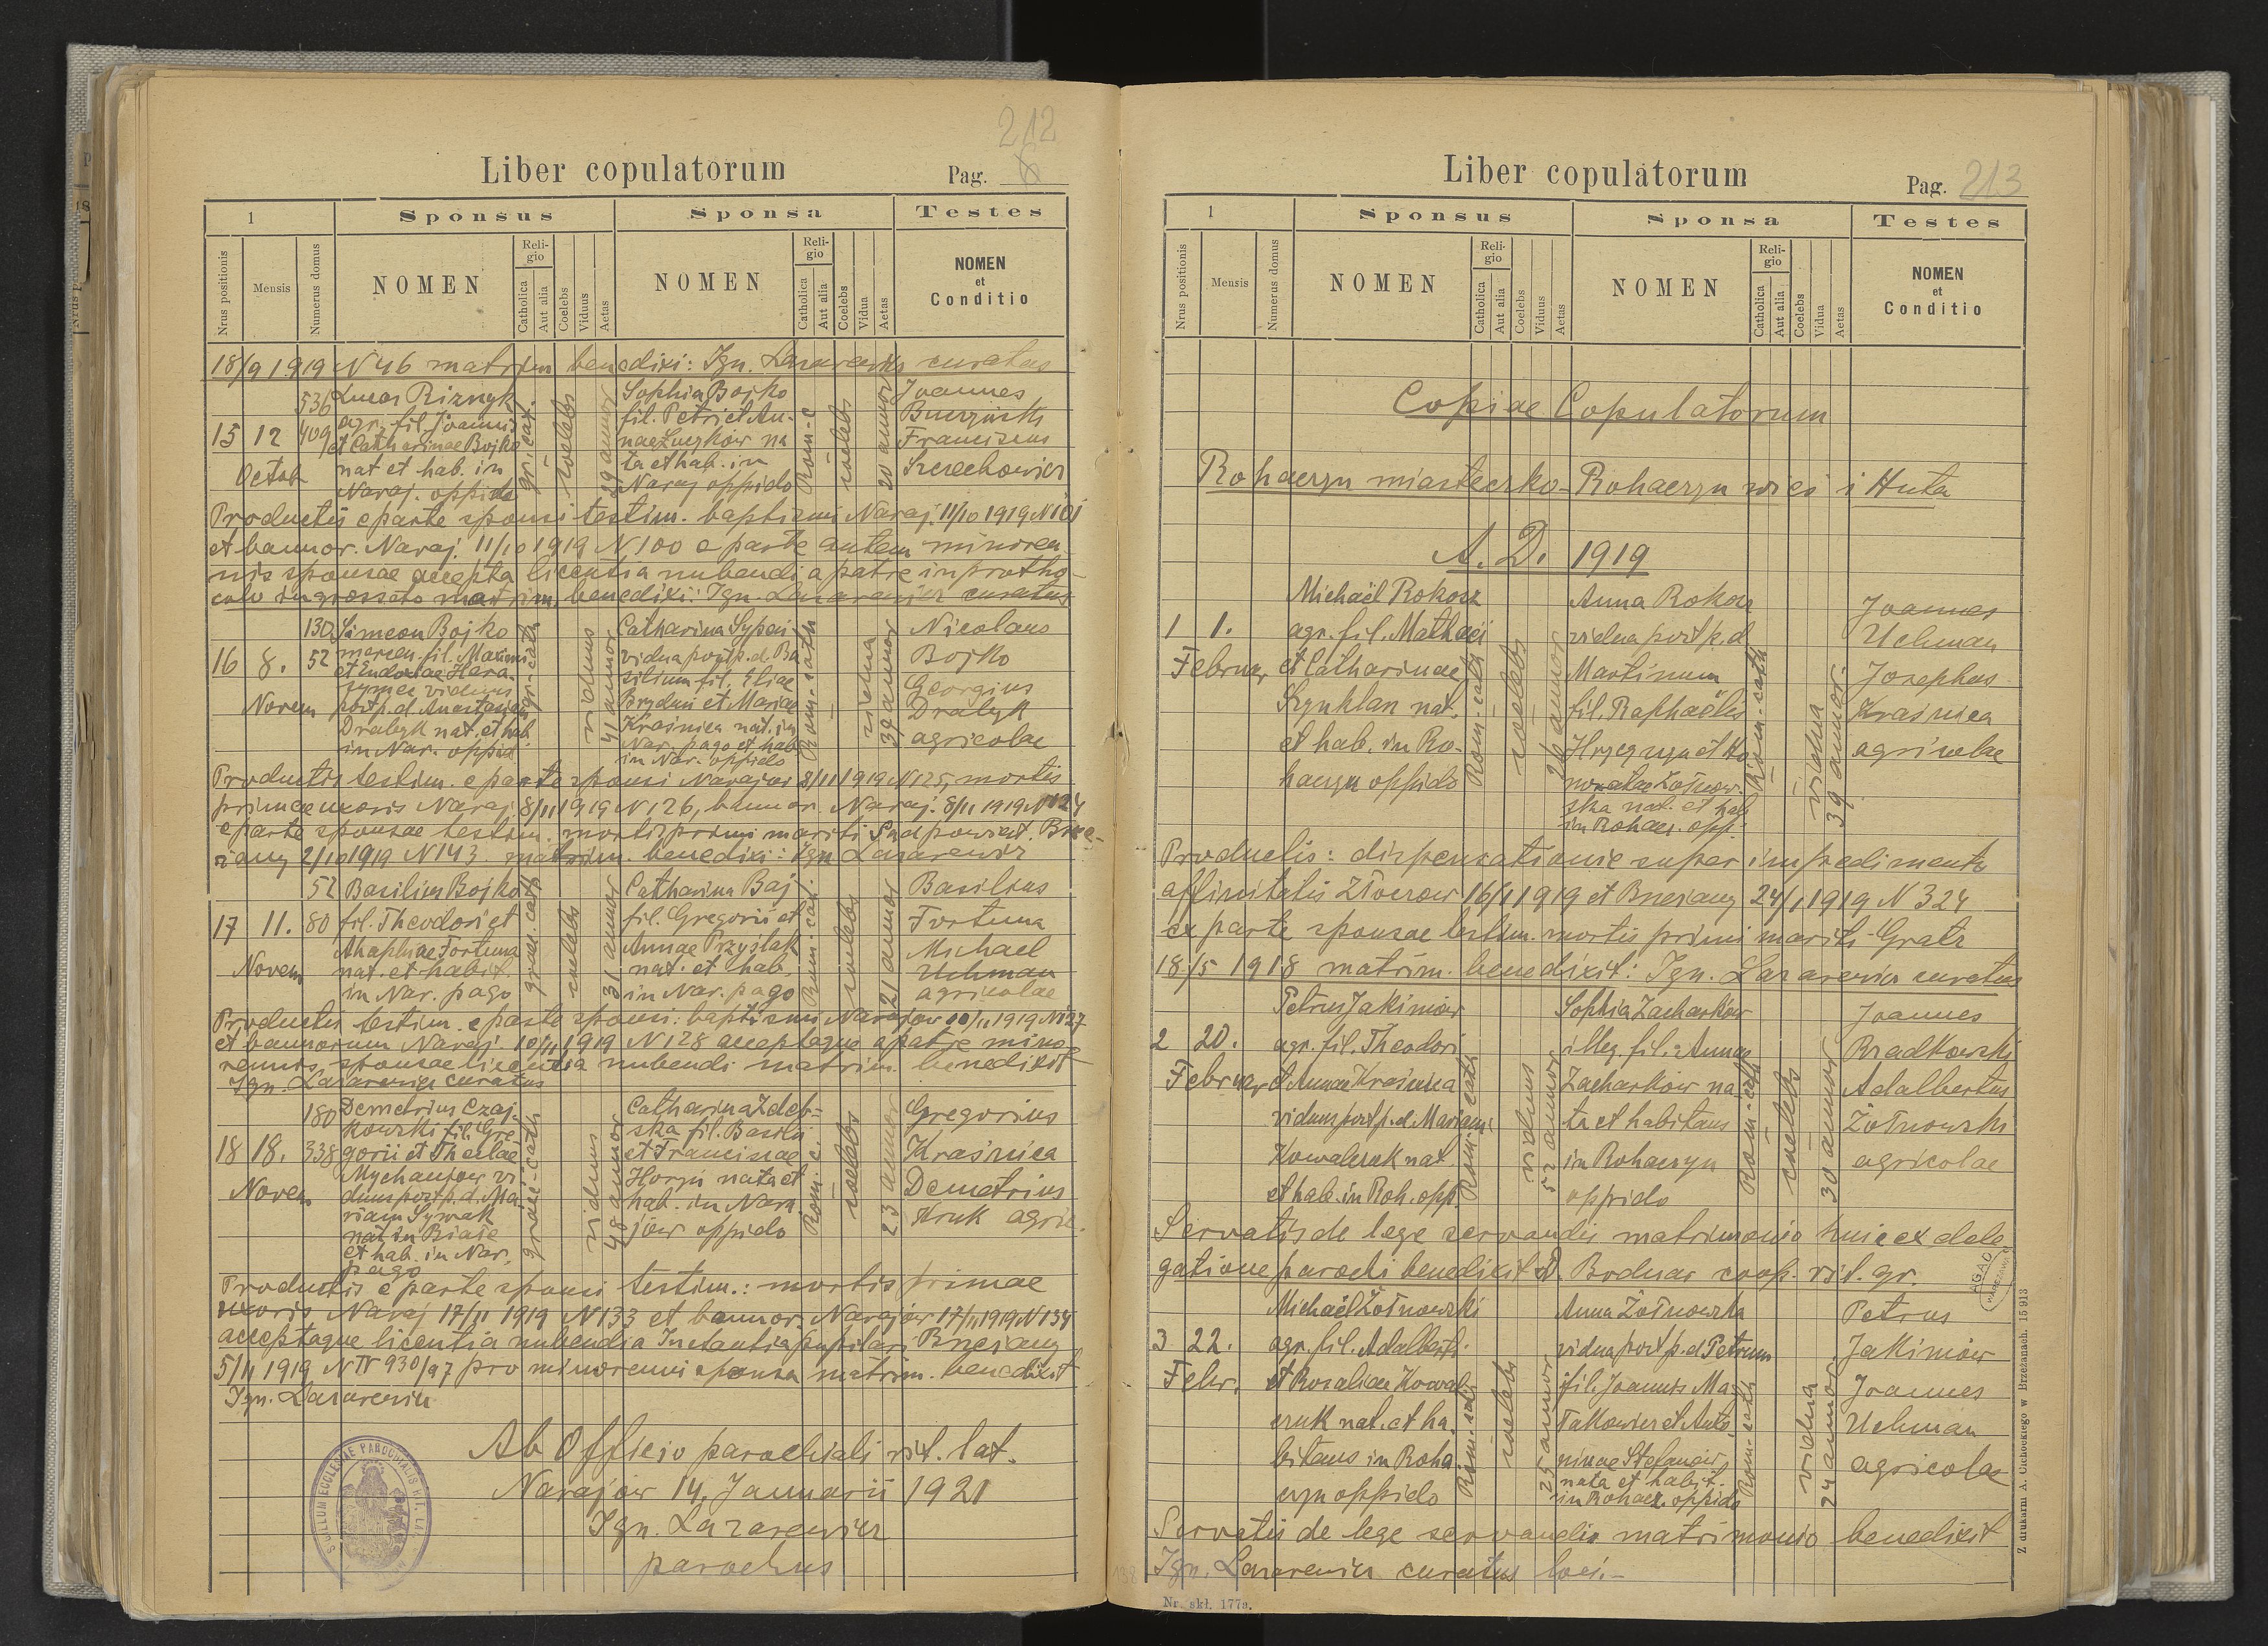 212
Liber copulatorum
Pag. 6
1
Sponsus
Sponsa
Testes
Nrus positionis
Mensis
Numerus domus
NOMEN
Religio
Catholica
Aut alia
Coelebs
Viduus
Aetas
NOMEN
Religio
Catholica
Aut alia
Coelebs
Vidua
Aetas
NOMEN
et
Conditio
18/9 1919 N 46 matrim benedixi: Ign. Lazarewicz curatus
15 12 Octob
536
409
Lucas Riznyk
agr. fil. Joannis
et Catharinae Bojko
nat et hab. in
Naraj. oppido
gr. cat.
coelebs
29 annor
Sophia Bojko
fil. Petri et An-
nae Luczków na
ta et hab. in
Naraj oppido
Rom-c
coelebs
20 annor
Joannes
Buczyński
Franciscus
Szczechowicz
Productis e parte sponsi testim. baptismi Naraj. 11/10 1919 N 101
et bannor. Naraj. 11/10 1919 N 100 e parte autem minoren
nis sponsae accepta licentia nubendi a patre in protho-
colo ingrossato matrim. benedixi: Ign. Lazarewicz curatus
16 8. Novem
130
52
Simeon Bojko
mercen. fil. Maximi
et Eudoxiae Hara-
symec viduus
post p. d. Anastasiam
Drabyk nat. et hab.
in Nar. oppid.
gr-cath
viduus
41 annor
Catharina Sypei
vidua post p. d. Ba
silium fil. Eliae
Brydun et Mariae
Kraśnica nat. in
Nar. pago et hab
in Nar. oppido
Rom-cath
vidua
39 annor
Nicolaus
Bojko
Georgius
Drabyk
agricolae
Productis testim. e parte sponsi Narajow 8/11 1919 N 125, mortis
primae uxoris Naraj. 8/11 1919 N 126, bannor. Naraj. 8/11 1919 N 124
e parte sponsae testim. mortis primi mariti Sąd powiat. Brze-
żany 2/10 1919 N 143 matrim. benedixi: Ign. Lazarewicz
17 11. Novem
52
80
Basilius Bojko
fil. Theodori et
Ahaphiae Fortuna
nat. et habit.
in Nar. pago
graec. cath
coelebs
31 annor
Catharina Baj
fil. Gregorii et
Annae Przyślak
nat. et hab.
in Nar. pago
Rom-cat.
coelebs
21 annor
Basilius
Fortuna
Michael
Uchman
agricolae
Productis testim. e parte sponsi: baptismi Narajow 10/11 1919 N 127
et bannorum Naraj. 10/11 1919 N 128 acceptaque a patre mino
rennis sponsae licentia nubendi matrim. benedixit
Ign. Lazarewicz curatus
18 18. Novem
180
338
Demetrius Czaj-
kowski fil. Gre
gorii et Theclae
Mychaujow vi
duus post p. d. Ma
riam Synak
nat in Biale
et hab. in Nar.
pago
graec-cath
viduus
48 annor
Catharina Zdeb-
ska fil. Basilii
et Franciscae
Horyn nata et
hab. in Nara
jów oppido
Rom. c.
coelebs
23 annor
Gregorius
Kraśnica
Demetrius
Kruk agric.
Productis e parte sponsi testim.: mortis primae
uxoris Naraj 17/11 1919 N 133 et bannor. Narajow 17/11 1919 N 134
acceptaque licentia nubendi a Instantia pupilari Brzeżany
5/11 1919 N IV 930/97 pro minorenni sponsa matrim. benedixit
Ign. Lazarewicz
Ab Officio parochiali rit. lat.
Narajow 14, Januarii 1921
Ign. Lazarewicz
parochus
213
Liber copulatorum
Pag.
1
Sponsus
Sponsa
Testes
Nrus positionis
Mensis
Numerus domus
NOMEN
Religio
Catholica
Aut alia
Coelebs
Viduus
Aetas
NOMEN
Religio
Catholica
Aut alia
Coelebs
Vidua
Aetas
NOMEN
et
Conditio
Copiae Copulatorum
Rohaczyn miasteczko - Rohaczyn wieś i Huta
A. D. 1919
1 1. Februar
Michaël Rokosz
agr. fil. Mathaei
et Catharinae
Szynklan nat.
et hab. in Ro-
haczyn oppido
Rom-cath
coelebs
26 annor
Anna Rokosz
vidua post p. d
Martinum
fil. Raphaëlis
Hryczyszyn et Ho
noratae Żołnow-
ska nat. et hab
in Rohacz. opp.
Rom-cath
vidua
39 annor.
Joannes
Uchman
Josephus
Kraśnica
agricolae
Productis: dispensationis super impedimento
affinitatis Złoczow 16/1 1919 et Brzeżany 24/1 1919 N 324
ex parte sponsae testim. mortis primi mariti Gratz
18/5 1918 matrim. benedixit: Ign. Lazarewicz curatus
2 20. Februar
Petrus Jakimów
agr. fil. Theodori
et Annae Kraśnica
viduus post p. d. Mariam
Kowalczuk nat.
et hab. in Roh. opp.
Rom-cath
viduus
52 annor
Sophia Zacharków
illeg. fil. Annae
Zacharków na
ta et habitans
in Rohaczyn
oppido
Rom-cath
coelebs
30 annor
Joannes
Bradkowski
Adalbertus
Żołnowski
agricolae
Servatis de lege servandis matrimonio huic ex dele
gatione parochi benedixit D. Bodnar coop. rit. gr.
3 22. Febr.
Michaël Żołnowski
agr. fil. Adalberti
et Rosaliae Kowal
czuk nat. et ha.
bitans in Roha
czyn oppido
Rom. cath
coelebs
25 annor
Anna Żołnowska
vidua post p. d Petrum
fil. Joannis Ma
Takowicz et Anto
ninae Stefanów,
nata et habit.
in Rohacz. oppido
Rom-cath
vidua
24 annor
Petrus
Jakimów
Joannes
Uchman
agricolae
Servatis de lege servandis matrimonio benedixit
Ign. Lazarewicz curatus loci.-
Nr. skł. 177a.
Z drukarni A. Cichockiego w Brzeżanach. 15913